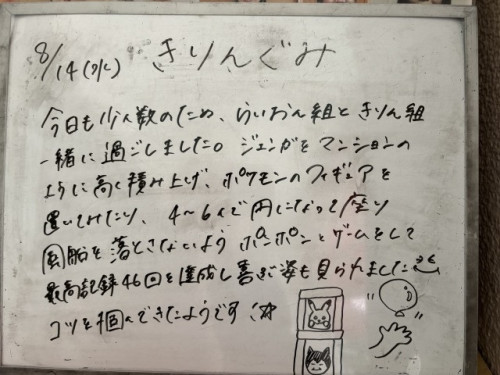 8/14(水) きりんぐみ
今日も少人数のため、らいおん組ときりん組
一緒に過ごしました。ジェンガをマンションの
ように高く積み上げ、ポケモンのフィギュアを
置いてみたり、4〜6人で円になって座り
風船を落とさないようポンポンとゲームをして
最高記録46回を達成し喜ぶ姿も見られました
コツを掴んできたようです